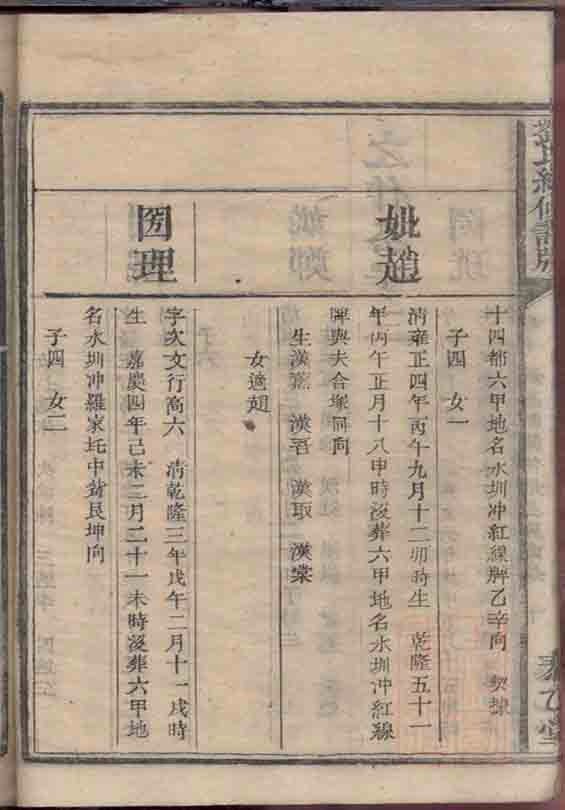 十四都六甲地名水圳冲紅線牌乙辛向
子四 女一
妣趙
清雍正四年丙午九月十二卯時生 乾隆五十一
年丙午正月十八申時歿葬六甲地名水圳冲紅線
牌與夫合塚同向
生漢 漢吾 漢取 漢棠
女適趙
國理
字次文行高六 清乾隆三年戊午二月十一戌時
生 嘉慶四年己未二月二十一未時歿葬六甲地
名水圳冲羅家坵中艮坤向
子四 女二